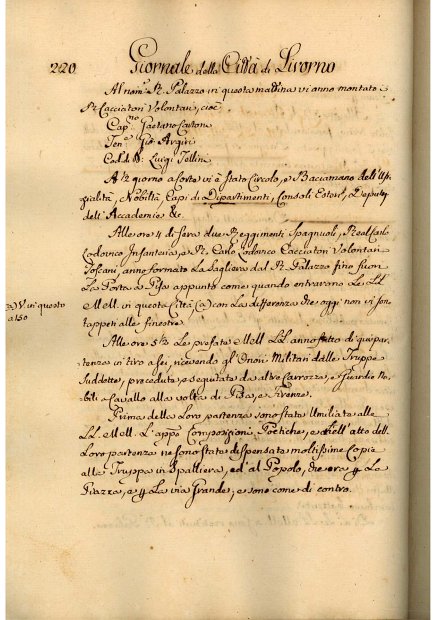 220 Giornale della Città di Livorno
Al nom.º R. Palazzo in questa mattina vi anno montato i
R. Cacciatori Volontari, cioè
Cap.no Gaetano Castoni
Ten.e Gio. Argiri
Luigi Tellini
giorno a Corte vi è Stato Circolo, e Baciamano dell'
Nobiltà, Capi di Dipartimenti, Consoli Esteri, Deputaz.
dell'Accademie &c.
Alle ore 4 di sera due Reggimenti Spagnuoli, Real Carlo
Lodovico Infanteria, e R. Carlo Lodovico Cacciatori Volontari
Toscani, anno formato La Spagliera dal R. Palazzo fino fuori
La Porta a Pisa appunto come quando entrarono Le LL.
MM. in questa Città (a) con La differenza che oggi non vi son
tappeti alle finestre.
(a) V. in questo
a 150
Alle ore 5½ Le prefate MM. LL. anno fatto di qui par-
tenza in tiro a sei, ricevendo gl'Onori Militari dalle Truppe
Suddette, precedute, e seguitate da altre Carrozze, e Guardie No-
bili a Cavallo alla volta di Pisa, e Firenze.
Prima della Loro partenza sono state Umiliate alle
LL. MM. L'app.º Composizioni Poetiche, e nell'atto della
Loro partenza ne sono state dispensate moltissime Copie
alla Truppa in Spalliera, ed al Popolo, che era p. La
Piazza, e p. La via Grande, e sono come di contro.